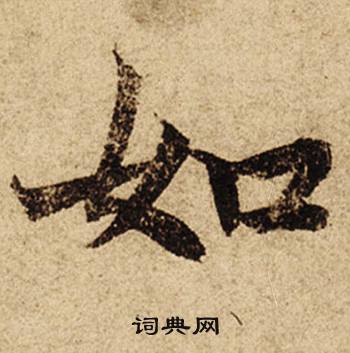 如
词典网